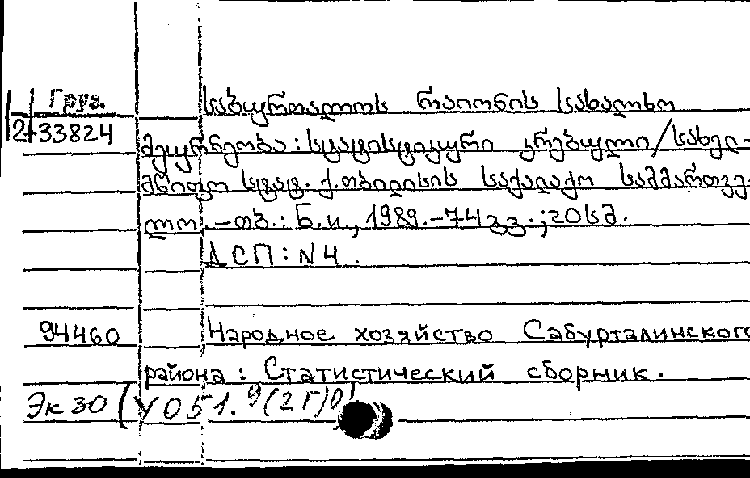 Груз.
საბურთალოს რაიონის სახალხო
2-33824
მეურნეობა: სტატისტიკური კრებული/სახელ-
მწიფო სტატ. ქ. თბილისის საქალაქო სამმართვე-
ლო. -თბ.: Б.и., 1989.-74გვ.; 20სმ.
ДСП: N4.
94460 Народное хозяйство Сабурталинского
района: Статистический сборник.
Эк 30 (У051.9(2Г)0)